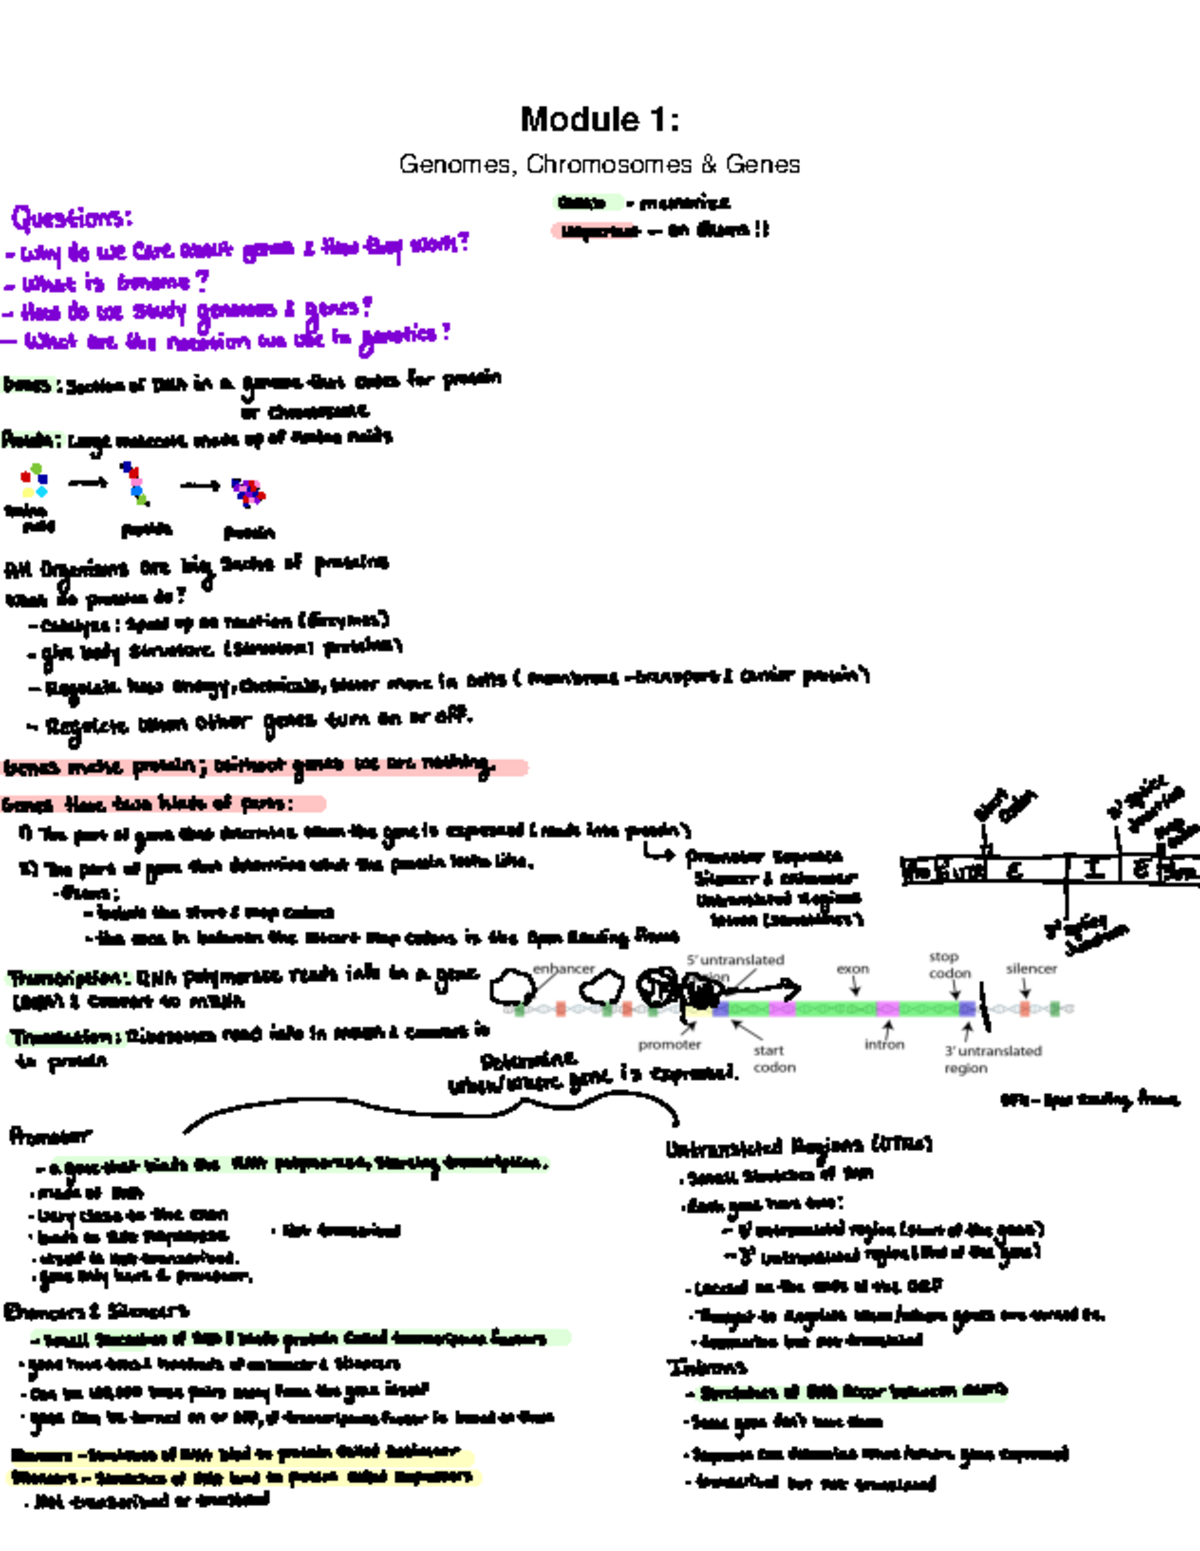 Module 1:
Genomes, Chromosomes & Genes
- memorize
Important - on Exam!!
Questions:
- Why do we care about genes & how they work?
- What is Genome?
- How do we study genomes & genes?
- What are the we use in genetics?
Genes: Section of DNA in a genome that codes for protein
or Chromosome
Protein: Large molecule made up of Amino Acids
Amino
Acid
Peptide
Protein
All Organisms are big Sacks of proteins
What do proteins do?
- Catalyze: Speed up an reaction (Enzymes)
- give body structure (Structural proteins)
- Regulate how energy, chemicals, water move in cells (membrane-transport & carrier protein)
- Regulate when other genes turn on or off.
Genes make protein; without genes we are nothing.
Genes Have two kinds of parts:
1) The part of gene that determine when the gene is expressed (reads into protein)
Promoter Sequence
Silencer & enhancer
Untranslated Regions
Intron (Sometimes)
2) The part of gene that determine what the protein looks like.
- Exons:
- include the start & stop codons
- the area in between the start stop codons is the Open Reading Frame
Start
Codon
3' Splice
Junction
Stop
Codon
Pro 5'UTR E I E
5' Splice
Junction
Transcription: RNA polymerase reads info in a gene
(DNA) & convert to mRNA
Translation: Ribosomes read info in mRNA & convert is
to protein
enhancer
5' untranslated
region
exon
stop
codon
silencer
promoter
start
codon
intron
3' untranslated
region
Determine
when/where gene is expressed.
ORF - Open Reading Frame
Promoter
- a gene that binds the RNA polymerase, starting transcription.
· made of DNA
- Very close to the exon
· binds to RNA Polymerase
· itself is not transcribed.
· gene only have 1 promoter.
· Not transcribed
Enhancers & Silencers
- Small Stretches of DNA & binds protein called transcription factors
· gene have hundreds of enhancer & silencers
- Can be 100,000 base pairs away from the gene itself
· gene can be turned on or off, if transcription factor is bound to them
Enhancers - Stretches of DNA bind to protein called Activator
Silencers - Stretches of DNA bind to protein called Repressors
· Not transcribed or translated
Untranslated Regions (UTRs)
· Small Stretches of DNA
· Each gene have two:
- 5' untranslated region (start of the gene)
- 3' untranslated region (End of the gene)
- Located on the ends of the ORF
· Thought to Regulate when/where genes are turned on.
· transcribe but not translated
Introns
- Stretches of DNA Occur between exons
- Some gene don't have them
- Sequence can determine when/where gene expressed
- transcribed but not translated